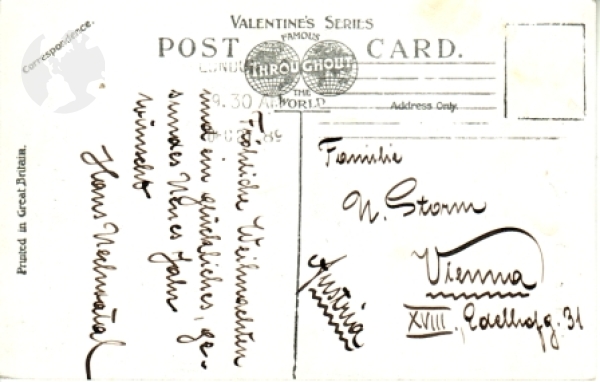 VALENTINE'S SERIES
FAMOUS
POST CARD.
THROUGHOUT
THE
WORLD
Correspondence.
Address Only.
9.30 AM
Printed in Great Britain.
Fröhliche Weihnachten
und ein glückliches, ge-
sundes Neues Jahr
wünscht
Hans
Familie
N. Storm
Vienna
XVIII. Edelhofg. 31
Austria